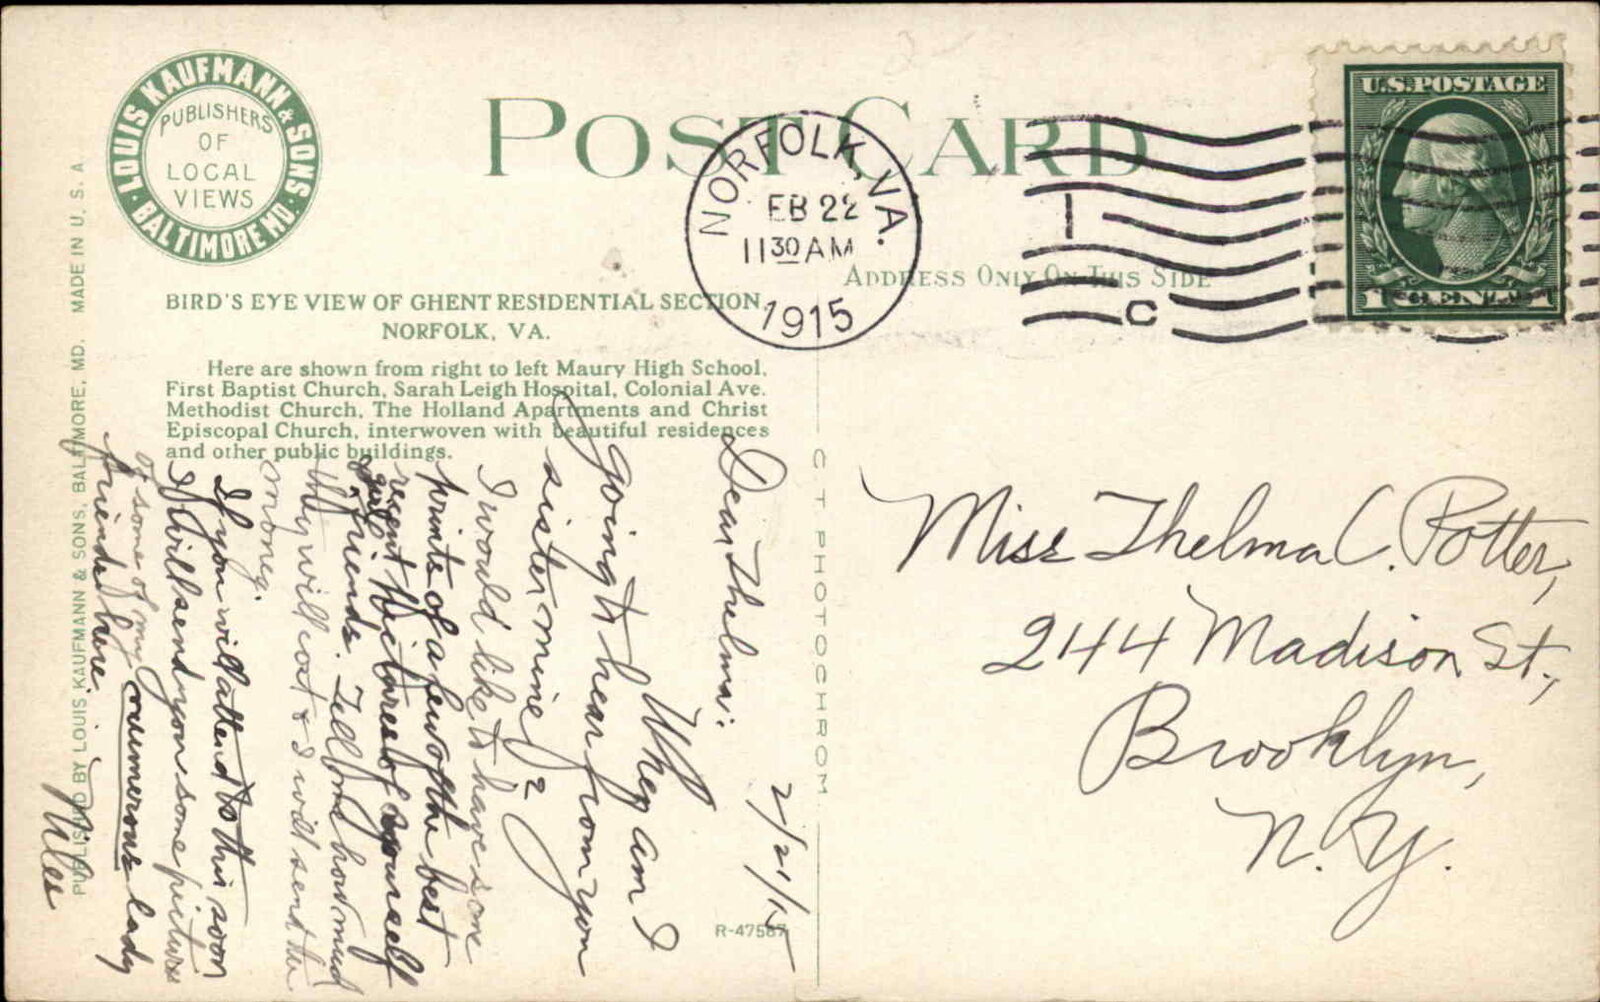 LOUIS KAUFMANN & SONS
BALTIMORE MD.
PUBLISHERS
OF
LOCAL
VIEWS
POST CARD
NORFOLK, VA.
FEB 22
1130 AM
1915
1
C
U.S. POSTAGE
ADDRESS ONLY ON THIS SIDE
BIRD'S EYE VIEW OF GHENT RESIDENTIAL SECTION,
NORFOLK, VA.
Here are shown from right to left Maury High School,
First Baptist Church, Sarah Leigh Hospital, Colonial Ave.
Methodist Church, The Holland Apartments and Christ
Episcopal Church, interwoven with beautiful residences
and other public buildings.
PUBLISHED BY LOUIS KAUFMANN & SONS, BALTIMORE, MD. MADE IN U. S. A
C T PHOTOCHROM
R-47587
2/21/15
Dear Thelma:
When am I
going to hear from you
sister mine?
I would like to have some
prints of a few of the best
recent pictures of yourself
& girl friends. Tell me how much
they will cost & I will send the
money.
If you will attend to this soon
I will send you some pictures
of some of my numerous lady
friends here.
Miss Thelma C. Potter,
244 Madison St.,
Brooklyn,
N.Y.